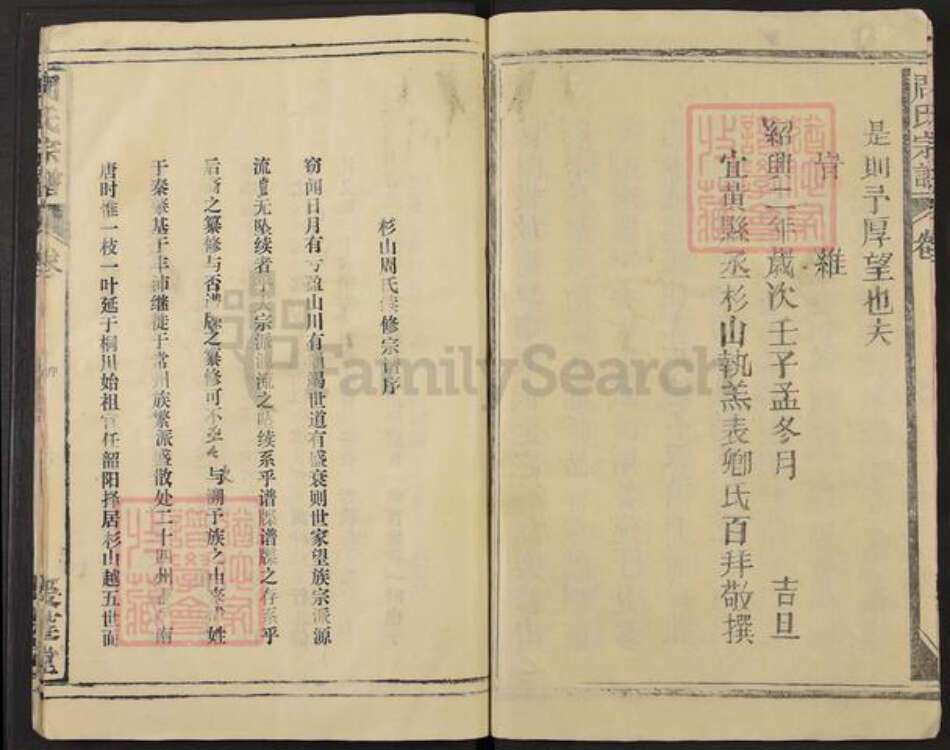 是則予厚望也夫
時
維
紹興二年歲次壬子孟冬月 吉旦
宜黃縣丞杉山執羔表卿氏百拜敬撰
杉山周氏 修宗谱序
窃闻日月有 盈山川有 竭世道有盛衰则世家望族宗派源
流 无坠续者 大宗派 流之坠续系乎谱牒谱牒之存系乎
后 之纂修与否 牒之纂修可不 与溯于族之由来 姓
于秦 基于丰沛继徙于常州族繁派盛散处二十四州 南
唐时惟一枝一叶延于桐川始祖官任韶阳择居杉山越五世而
周氏宗譜
卷
愛蓮堂
周氏宗譜
卷
FamilySearch